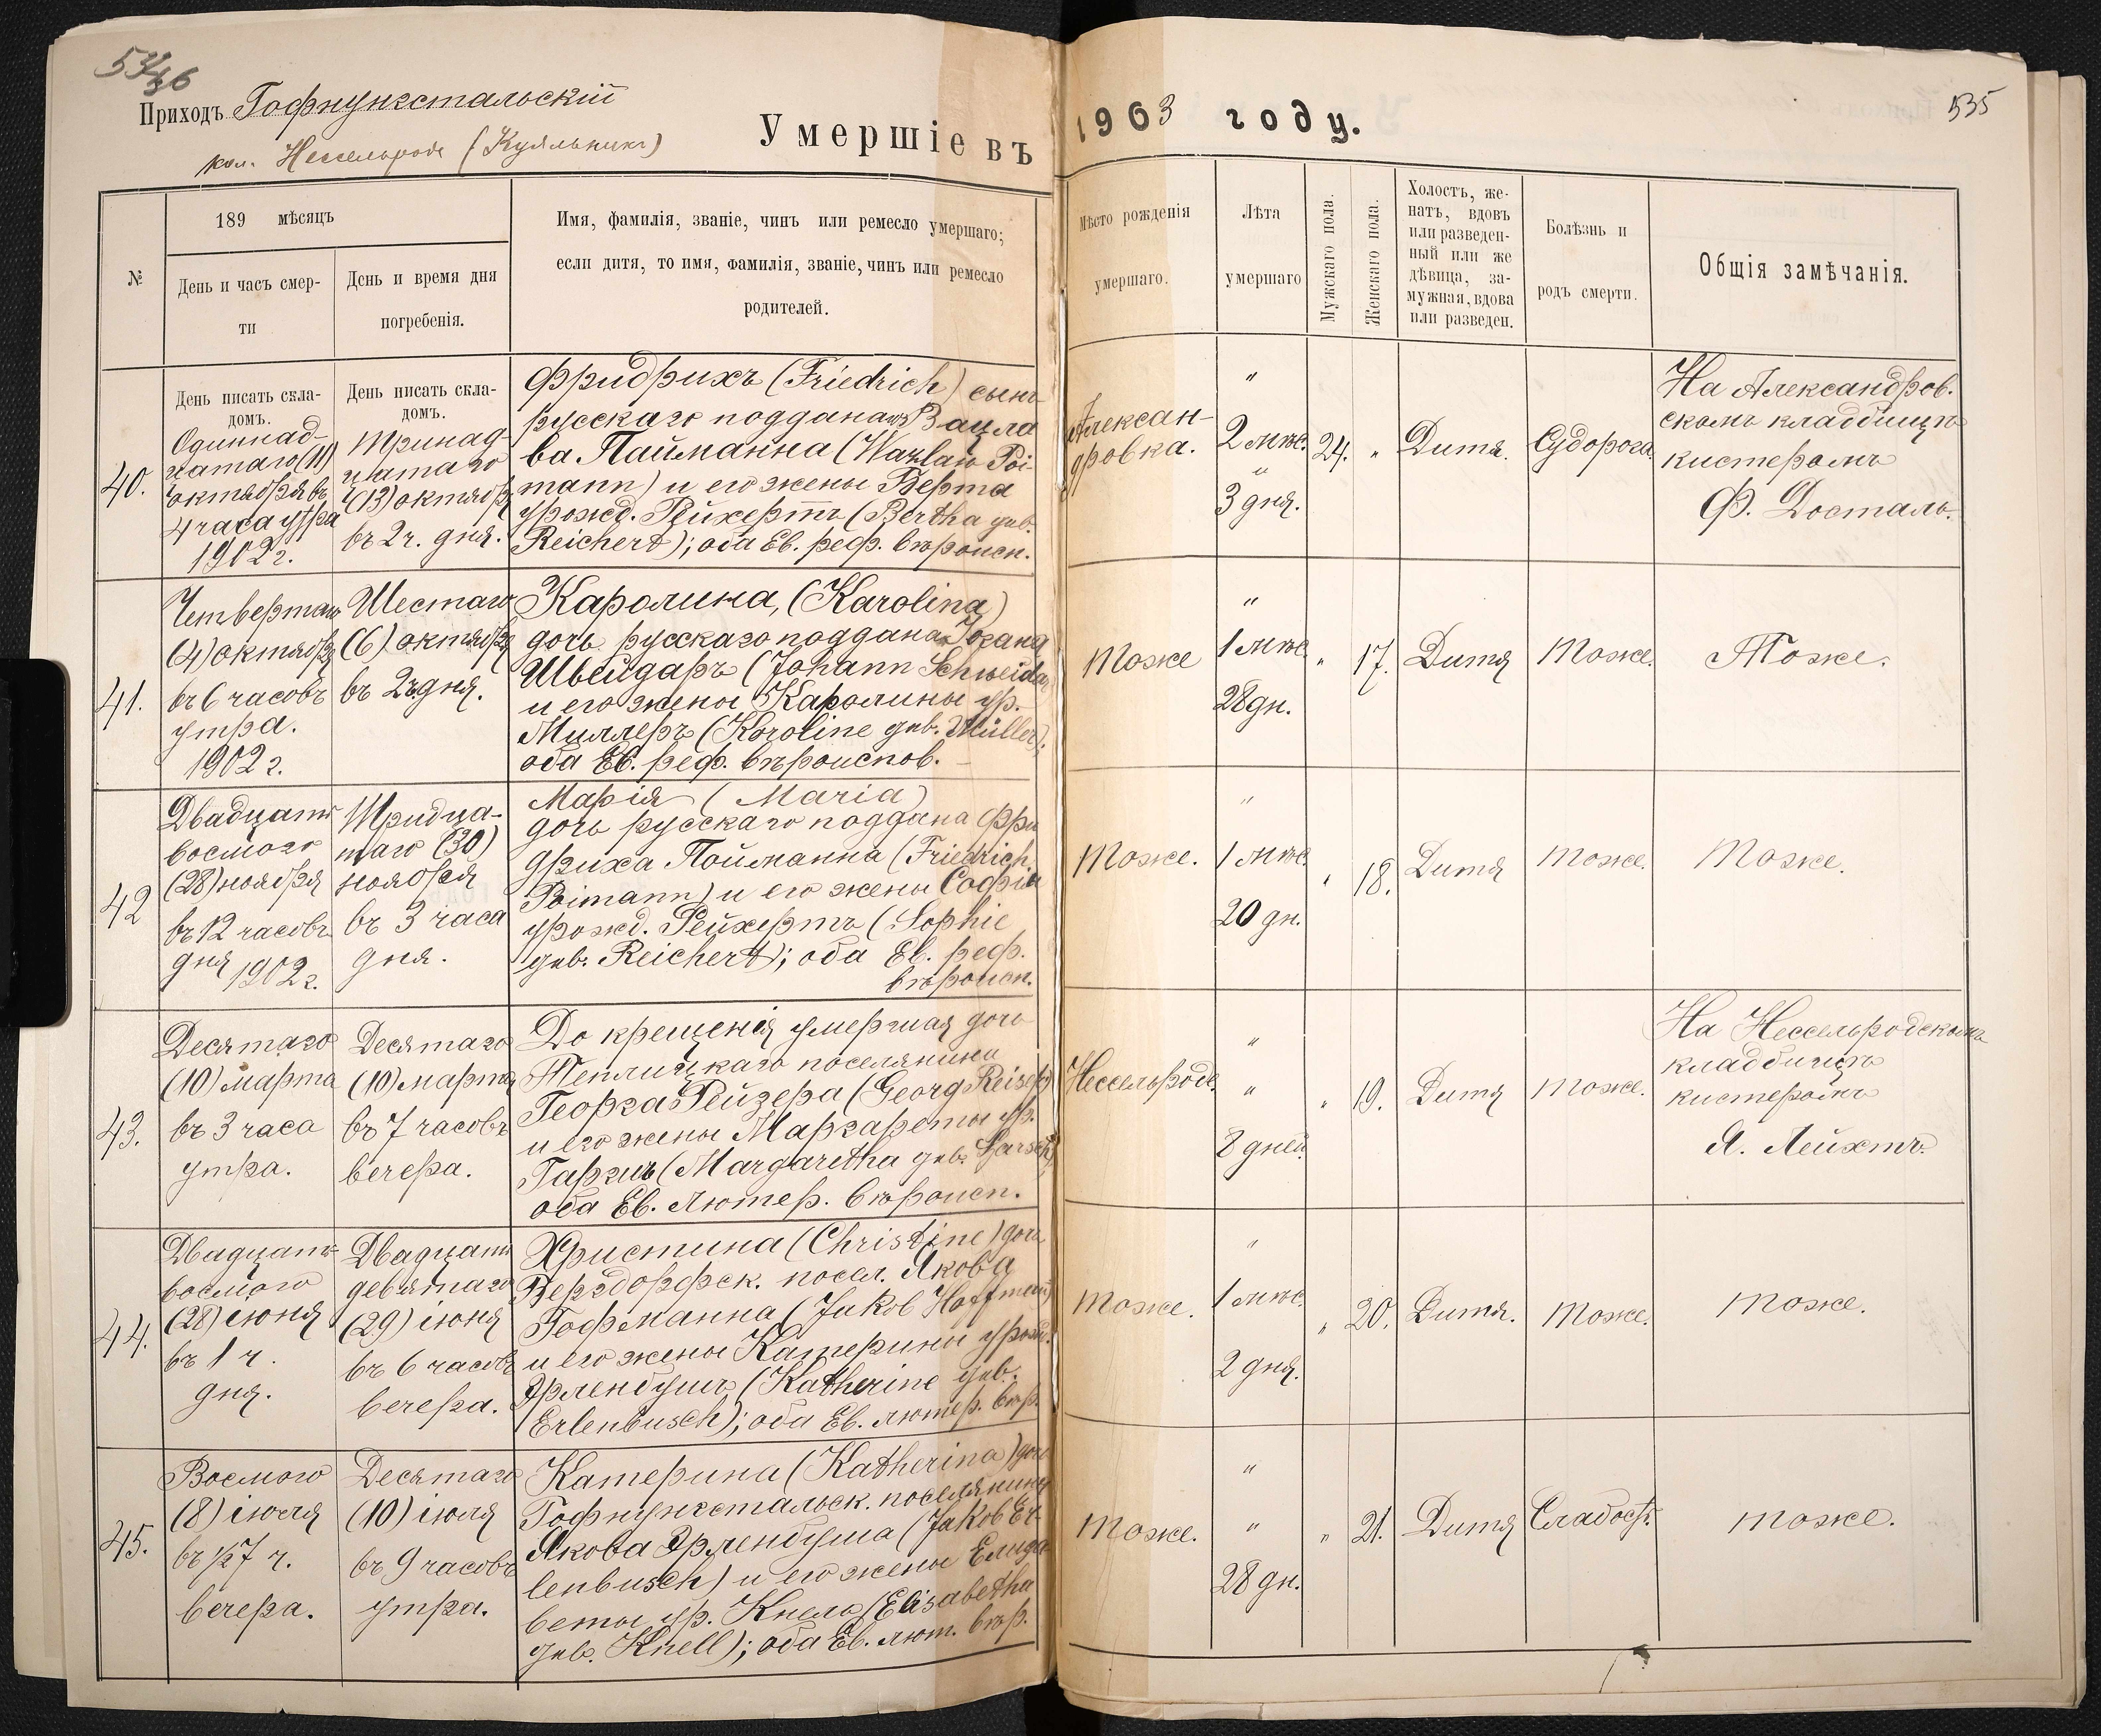 Приходъ Гофнунгстальскій
кол. Нессельроде (Куяльникъ)
Умершіе въ
1903 году.
535
№
189 мѣсяцъ
День и часъ смер-
ти
День и время дня
погребенія.
Имя, фамилія, званіе, чинъ или ремесло умершаго;
если дитя, то имя, фамилія, званіе, чинъ или ремесло
родителей.
Мѣсто рожденія
умершаго.
Лѣта
умершаго
Мужскаго пола.
Женскаго пола.
Холостъ, же-
натъ, вдовъ
или разведен-
ный или же
дѣвица, за-
мужная, вдова
или разведен.
Болѣзнь и
родъ смерти.
Общія замѣчанія.
40.
День писать скла-
домъ.
Одиннад-
цатаго (11)
октября въ
4 часа утра
1902 г.
День писать скла-
домъ.
Тринад-
цатаго
(13) октябр
въ 2 ч. дня.
Фридрихъ (Friedrich) сынъ
русскаго подданаго Вацла
ва Пайманна (Wazlaw Poi-
mann) и его жены Берта
урожд. Рейхертъ (Bertha geb.
Reichert); оба Ев. реф. вѣроисп.
Алексан-
дровка.
"
2 мѣс.
"
3 дня.
24.
"
Дитя.
Судорога
На Александров.
скомъ кладбищѣ
кистеромъ
Ф. Досталь.
41.
Четвертаго
(4) октября
въ 6 часовъ
утра.
1902 г.
Шестаго
(6) октября
въ 2 ч. дня.
Каролина, (Karolina)
дочь русскаго поддана Іогана
Швейдаръ (Johann Schweidar
и его жены Каролины ур.
Миллеръ (Koroline geb. Müller);
оба Ев. реф. вѣроиспов.
Тоже
"
1 мѣс.
28 дн.
"
17.
Дитя
Тоже.
Тоже.
42
Двадцать
восмого
(28) ноября
въ 12 часовъ
дня 1902 г.
Тридца-
таго (30)
ноября
въ 3 часа
дня.
Марія (Maria)
дочь русскаго поддана Фри
дриха Пойманна (Friedrich
Poimann) и его жены Софіи
урожд. Рейхертъ (Sophie
geb. Reichert); оба Ев. реф.
вѣроисп.
Тоже.
"
1 мѣс.
20 дн.
"
18.
Дитя
Тоже.
Тоже.
43.
Десятаго
(10) марта
въ 3 часа
утра.
Десятаго
(10) марта
въ 7 часовъ
вечера.
До крещенія умершая дочь
Теплицкаго поселянина
Георга Рейзера (Georg Reiser)
и его жены Маргареты ур.
(Margaretha geb.
оба Ев. Лютер. вѣроисп.
Нессельроде.
"
"
8 дней
"
19.
Дитя
Тоже.
На Нессельродскомъ
кладбищѣ
кистеромъ
Я. Лейхтъ.
44.
Двадцать
восмого
(28) июня
въ 1 ч.
дня.
Двадцать
девятаго
(29) іюня
въ 6 часовъ
вечера.
Христина (Christine) дочь
Бергдорфск. посел. Якова
Гофманна (Jakob Hoffmann)
и его жены Катерины урожд.
Эрленбушъ (Katherine geb.
Erlenbusch); оба Ев. лютер. вѣр.
Тоже.
"
1 мѣс.
2 дня.
"
20.
Дитя.
Тоже.
Тоже.
45.
Восмого
(8) іюля
въ ½7 ч.
вечера.
Десятаго
(10) іюля
въ 9 часовъ
утра.
Катерина (Katherina) дочь
Гофнунгстальск. поселянина
Якова Эрленбуша (Jakob Er-
lenbusch) и его жены Елиза
веты ур. Кнель (Elisabetha
geb. Knell); оба Ев. лют. вѣр.
Тоже.
"
"
28 дн.
"
21.
Дитя
Слабость.
Тоже.